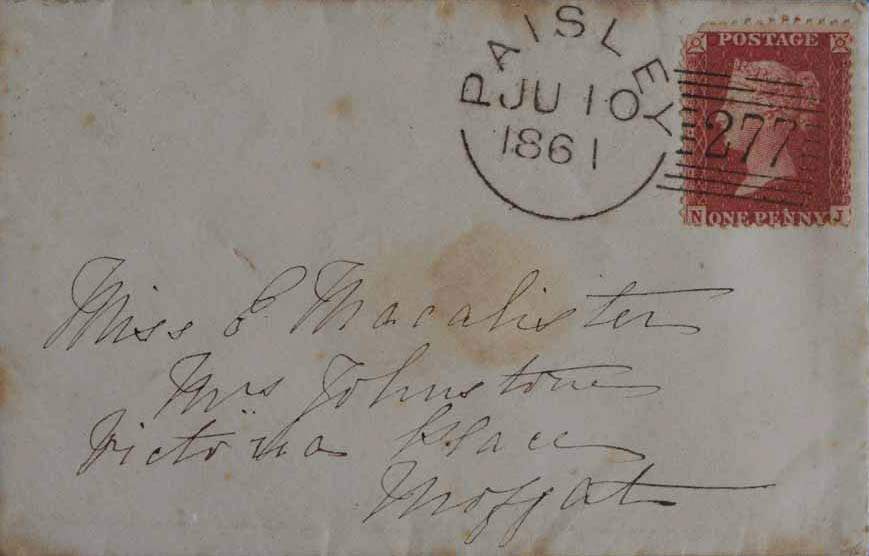 PAISLEY
JU 10
1861
277
POSTAGE
ONE PENNY
N J
Miss E Macalister
Mrs Johnstone
Victoria Place
Moffat